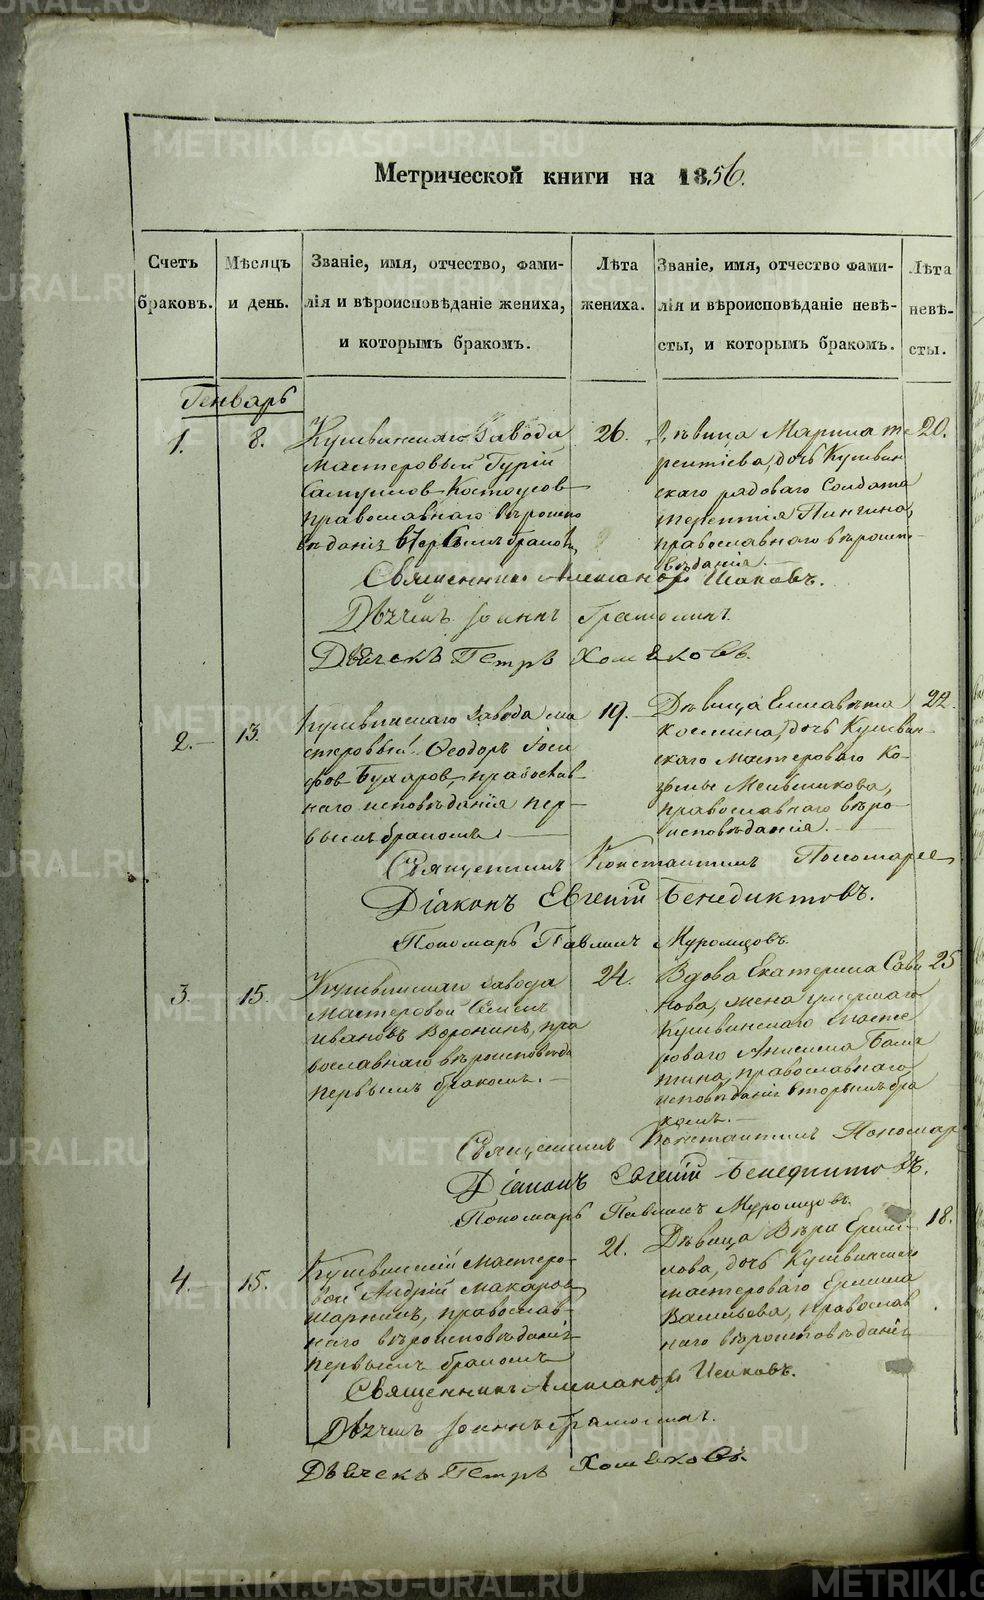 Метрической книги на 1856.
Счетъ браковъ.
Мѣсяцъ и день.
Званіе, имя, отчество, фами-
лія и вѣроисповѣданіе жениха,
и которымъ бракомъ.
Лѣта
жениха.
Званіе, имя, отчество фами-
лія и вѣроисповѣданіе невѣ-
сты, и которымъ бракомъ.
Лѣта
невѣ-
сты.
Генварь
1.
8.
Кушвинскаго Завода
мастеровый Гурій
Костоусов
православнаго вѣроиспо
вѣданія первымъ бракомъ,
26.
Дѣвица Марина Те
рентіева, дочь Кушвин
скаго рядоваго Солдата
Терентія
православнаго вѣроиспо-
вѣданія.
20.
Священникъ Александръ Исаковъ.
Дьячекъ Іоаннъ Грамолинъ.
Дьячекъ Петръ Хомяковъ.
2.
13.
Кушвинскаго Завода ма
стеровый Ѳеодоръ Іоси
фов Бухаров, православ
наго исповѣданія пер-
вымъ бракомъ.
19.
Дѣвица Елисавета
Космина, дочь Кушвин-
скаго мастероваго Ко-
зьмы Меньшикова,
православнаго вѣро-
исповѣданія.
22.
Священникъ Константинъ Пономарев
Діаконъ Евгеній Бенедиктовъ.
Пономарь Павлинъ Муромцовъ.
3.
15.
Кушвинскаго Завода
мастеровой Семенъ
Ивановъ Воронинъ, пра
вославнаго вѣроисповѣда
первымъ бракомъ.
24.
Вдова Екатерина Савви
нова, жена умершаго
Кушвинскаго масте
роваго Анисима
православнаго
исповѣданія вторымъ бра
комъ.
25
Священникъ Константинъ Пономар
Діаконъ Евгеній Бенедиктовъ.
Пономарь Павлинъ Муромцовъ.
4.
15.
Кушвинскій мастеро-
вой Андрій Макаров
православ-
наго вѣроисповѣданія
первымъ бракомъ
21.
Дѣвица Вѣра Ерми-
лова, дочь Кушвинскаго
мастероваго Ермила
Васильева, православ
наго вѣроисповѣданія
18.
Священникъ Александръ Исаковъ.
Дьячекъ Іоаннъ Грамолинъ.
Дьячекъ Петръ Хомяковъ.
METRIKI.GASO-URAL.RU